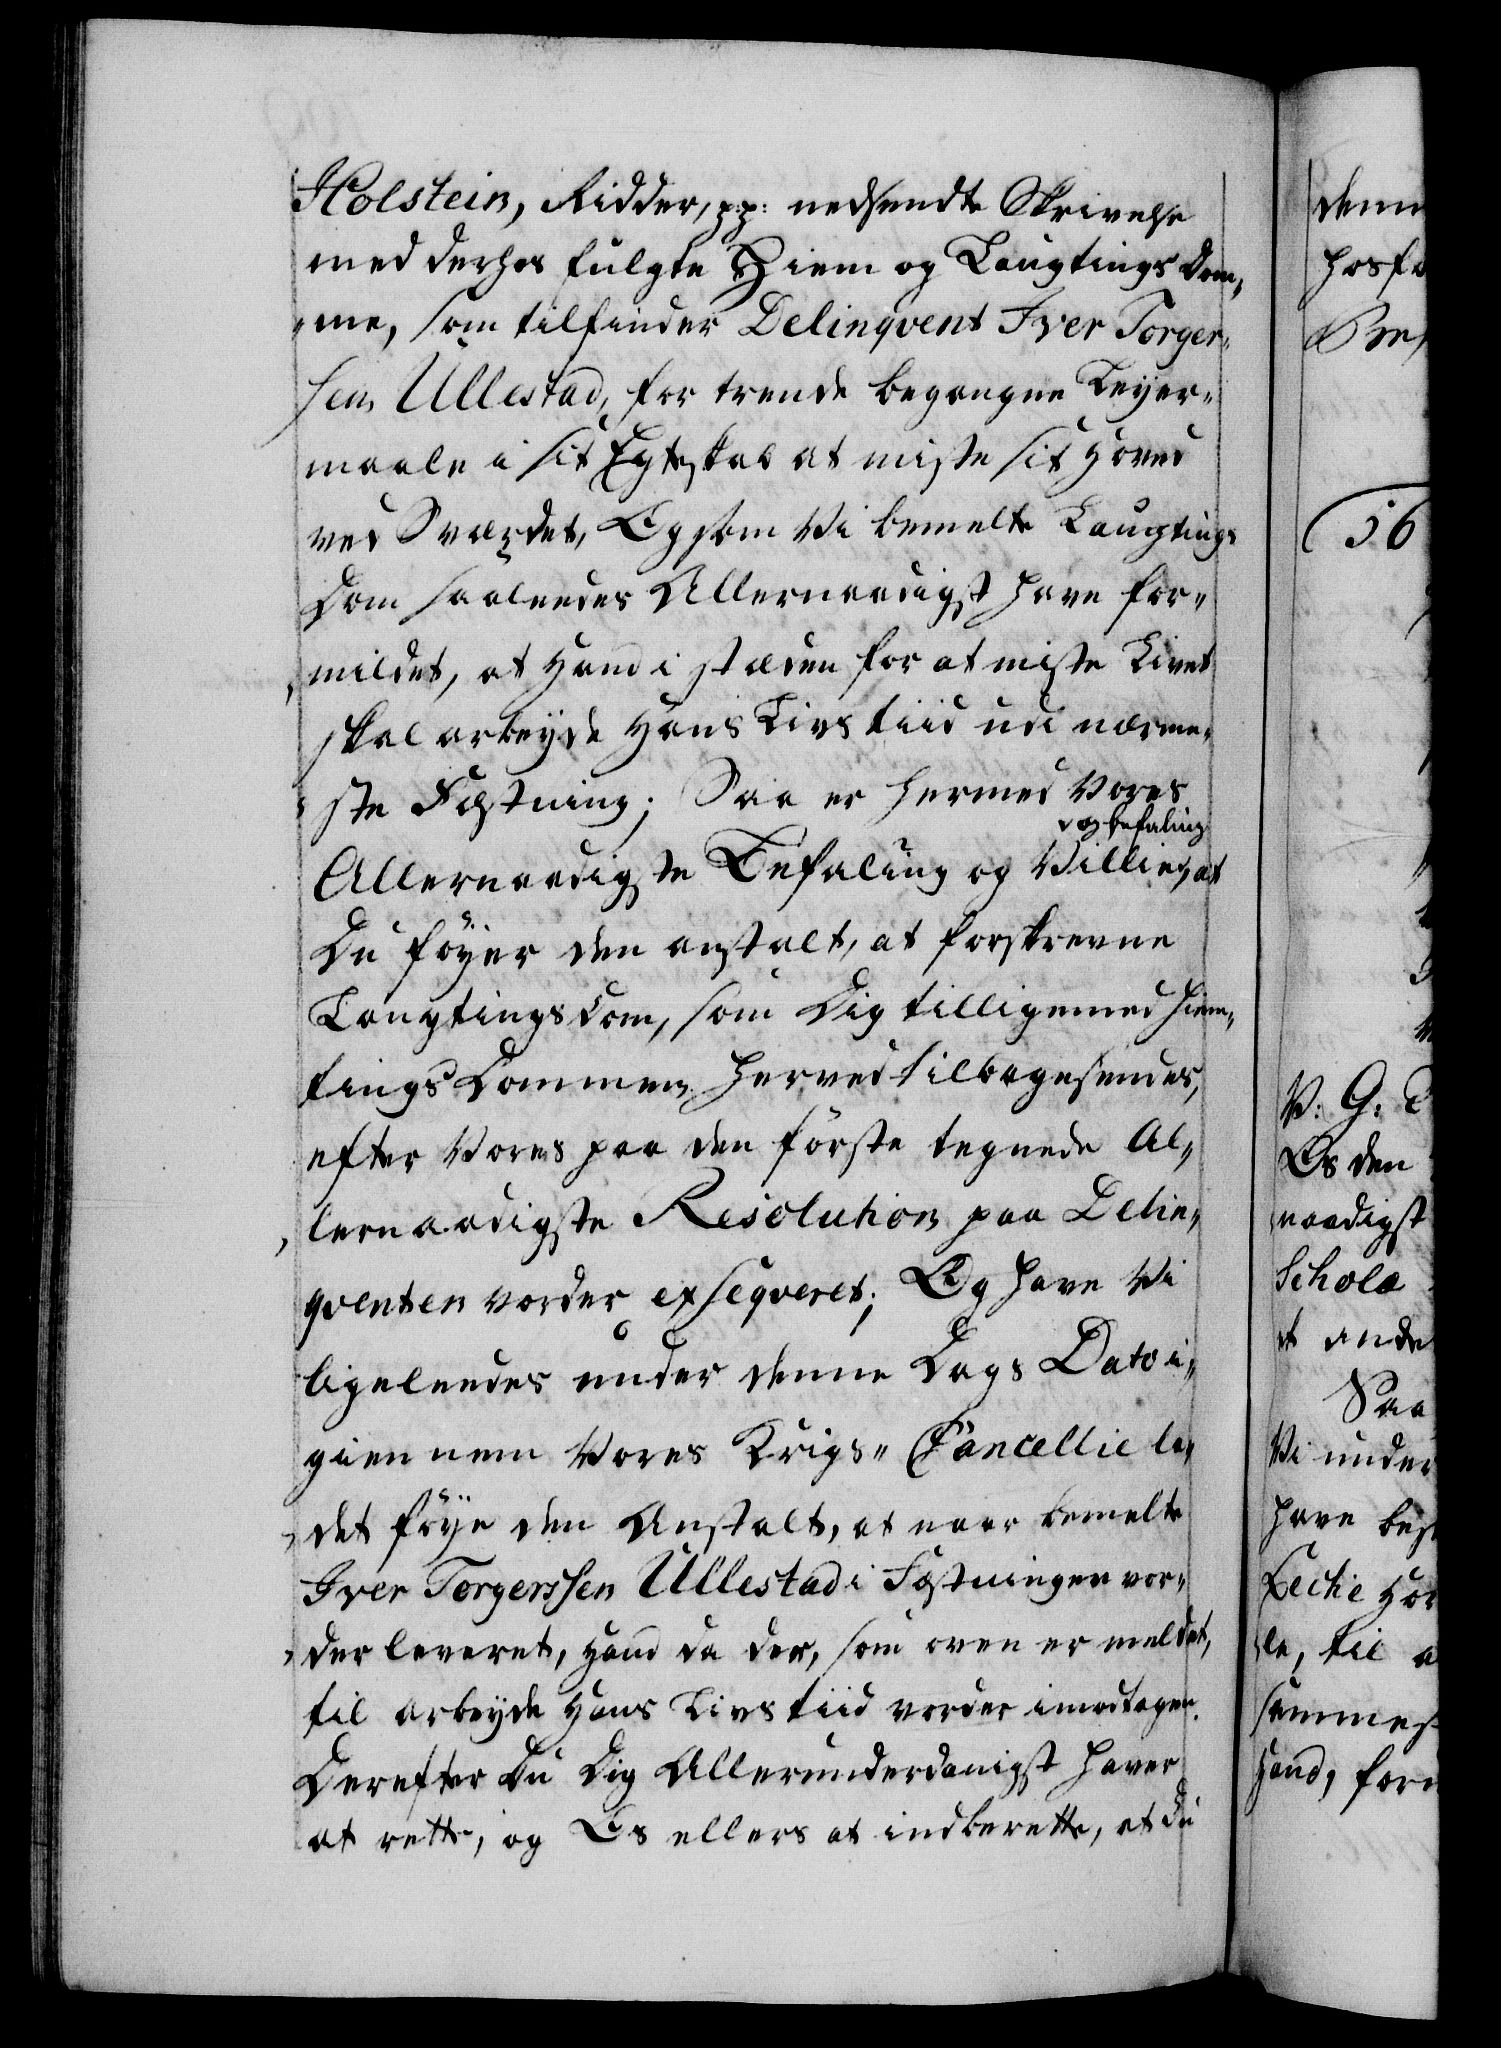 Holstein, Ridder, pp: nedsendte Skrivelse
med derhos fulgte Hiem og Laugtings Dom„
„me, som tilfinder Delinqvent Iver Torger„
sen Ullestad, for trende begangne Leyer„
maale i sit Egteskab at miste sit Hoved
ved Sværdet, Og som Vi bemelte Laugtings
Dom saaleedes Allernaadigst have for„
„mildet, at Hand i stæden for at miste Livet
skal arbeyde Hans Livs tiid udi nærme„
„ste Fæstning; Saa er hermed Vores
og befaling
Allernaadigste Befaling og Villie, at
Du föyer den anstalt, at forskrevne
Laugtings dom, som Dig tilligemed Hiem„
tings Dommen herved tilbagesendes,
efter Vores paa den förste tegnede Al„
„lernaadigste Resolution paa Delin„
qventen vorder exseqveret; Og have Vi
ligeleedes under denne Dags Dato i„
giennem Vores Krigs„ Cancellie la„
„det föye den Anstalt, at naar bemelte
Iver Torgerssen Ullestad i Fæstningen vor„
„der leveret, Hand da der, som oven er meldet,
til arbeyde Hans Livs tiid vorder imodtagen.
Derefter Du Dig Allerunderdanigst haver
at rette, og Os ellers at indberette, at Du
denn
hosfø
56
V: G: T
Os den
naadigst
Schole
et ande
Saa
Vi under
have bes
Lectie Hør
le, til a
Hand, for